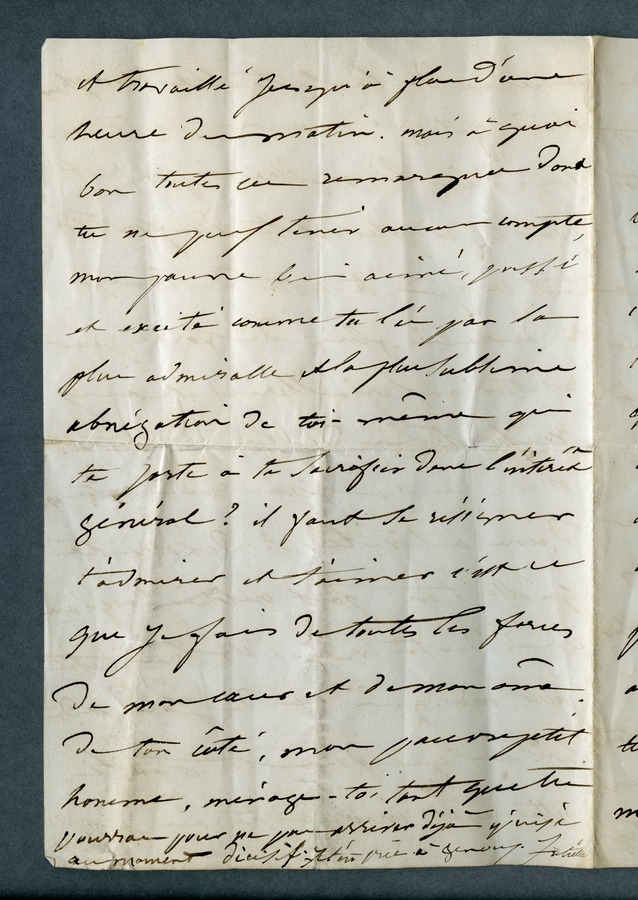 et travaillé jusqu'à plus d'une
heure du matin. mais à quoi
bon toutes ces remarques dont
tu ne peux tenir aucun compte
mon pauvre bien aimé, poussé
et excité comme tu l'es par la
plus admirable et la plus sublime
abnégation de toi-même qui
te porte à te sacrifier dans l'intérêt
général ? il faut se résigner
t'admirer et t'aimer c'est ce
que je fais de toutes les forces
de mon cœur et de mon âme.
de ton côté, mon pauvre petit
homme, ménage-toi tant que tu
pourras pour ne pas arriver déjà épuisé
au moment décisif. Je t'en prie à genoux. Juliette